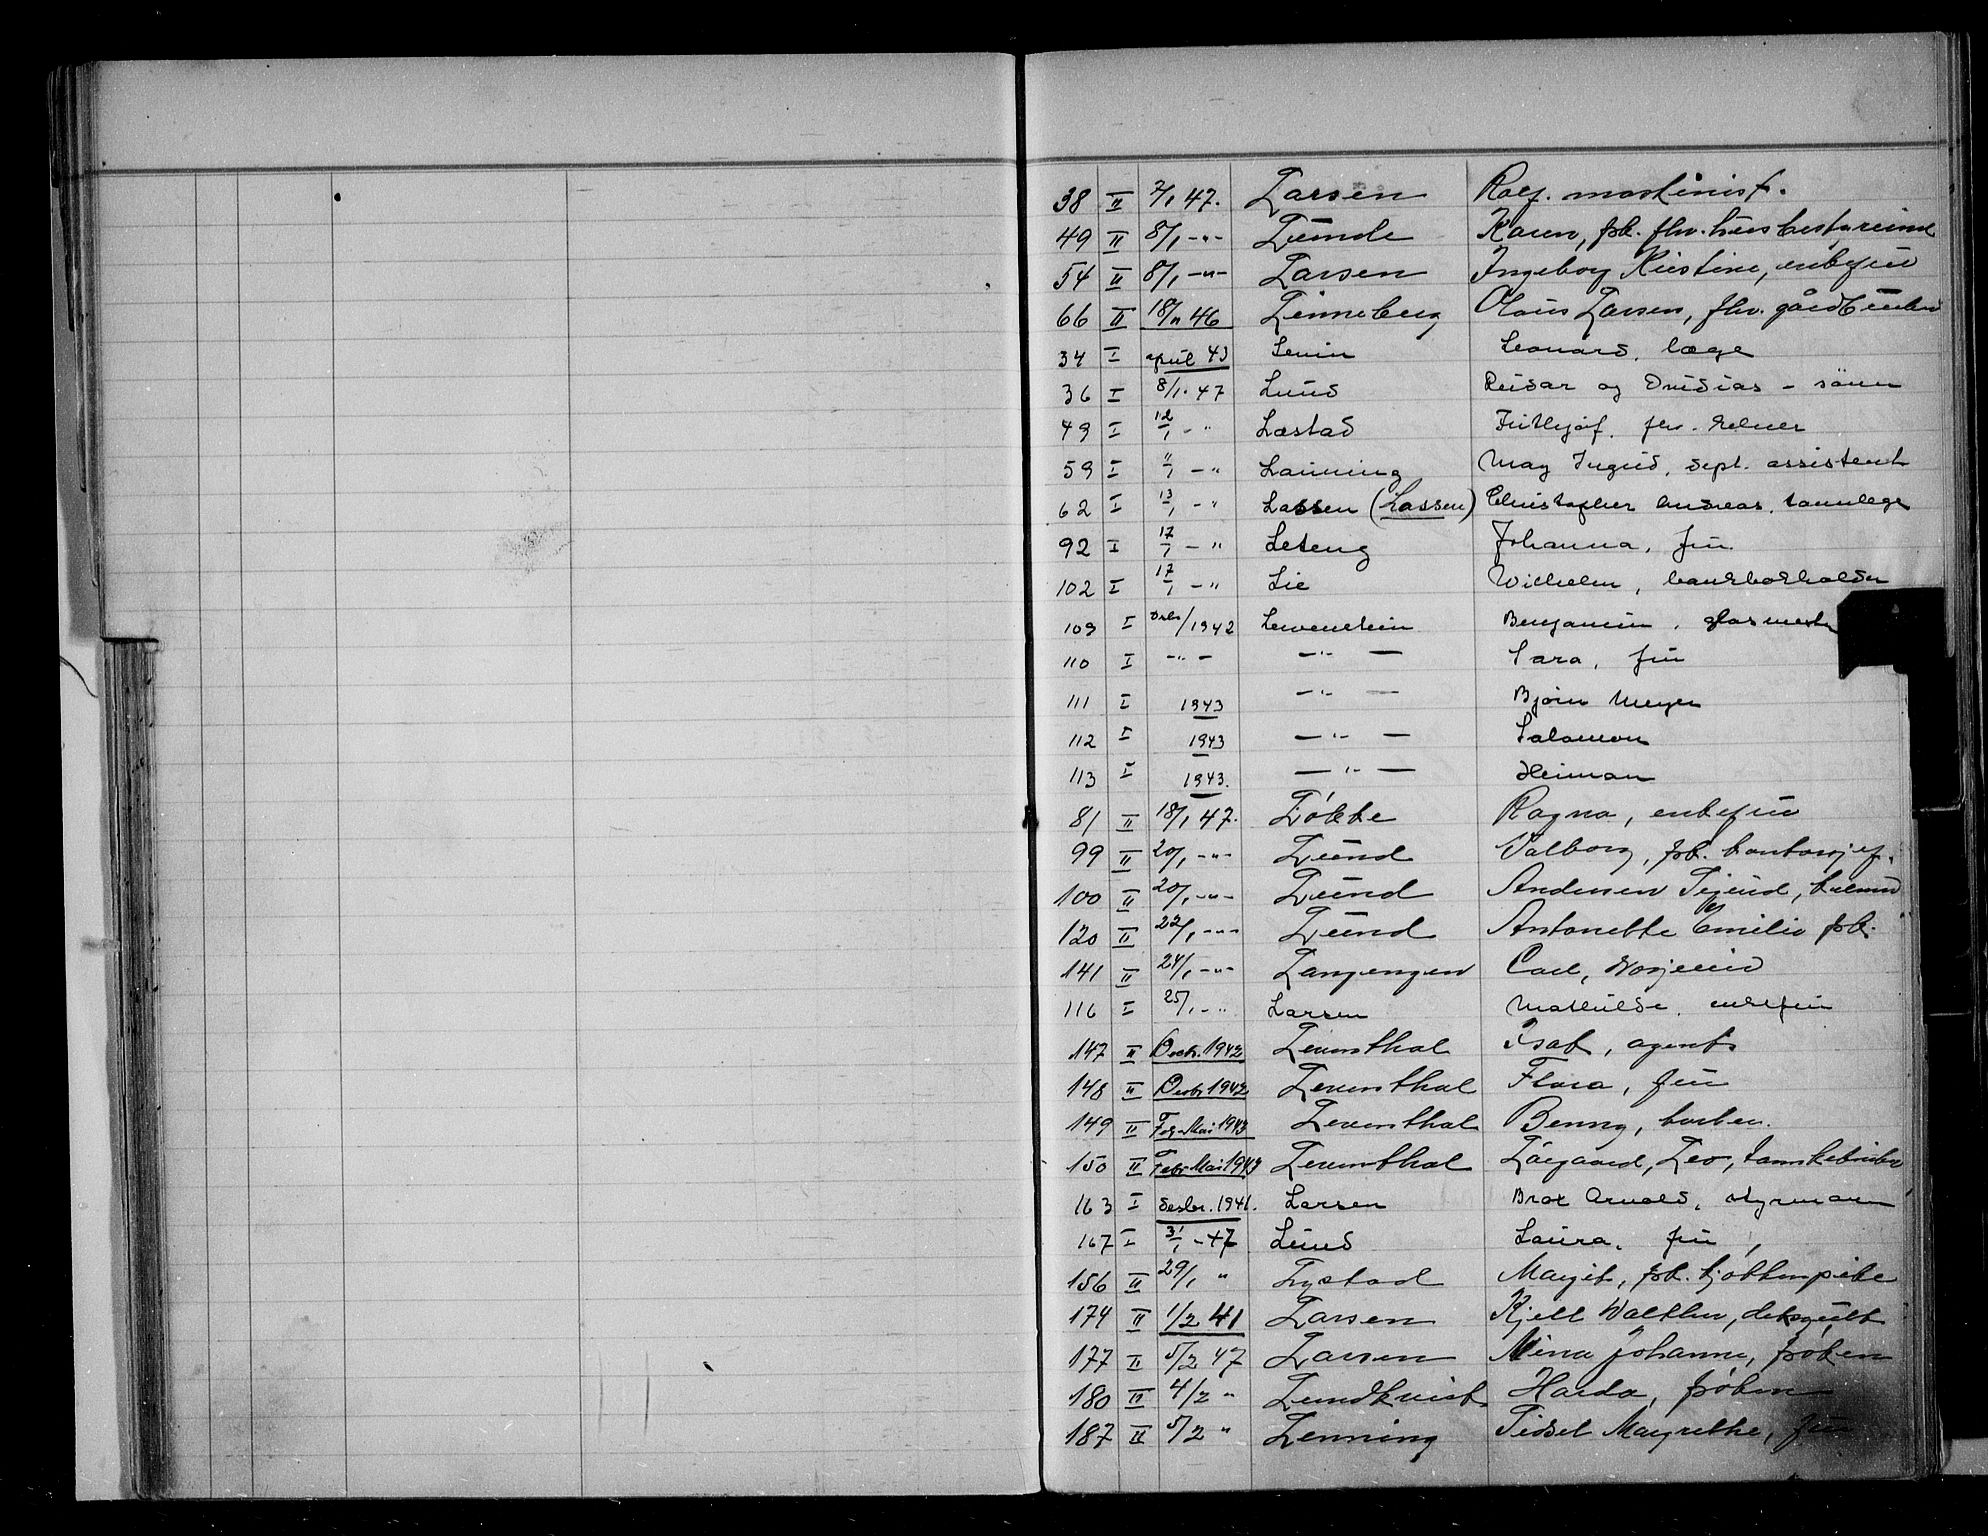 38 II 7/1 47. Larsen Rolf. maskinist.
49 II 8/1 -"- Lunde Karen, frk. fhv. husbestyrerinne
54 II 8/1 -"- Larsen Ingeborg Kristine, enkefru
66 II 18/11 46 Linneberg Olaus Larsen, fhv. gårdbruker
34 I april 43 Levin Leonard, læge
36 I 8/1. 47 Lund Reidar og - sønn
49 I 12/1 - " Læstad Frithjof. fhv. kelner
59 I 11/1 - " Lanning May Ingrid. dept. assistent
62 I 13/1 - " Lassen (Lassen) Christopher Andreas. tannlege
92 I 17/1 - " Leteng Johanna, fru.
102 I 17/1 - " Lie Wilhelm, bankbokholder
109 I Desbr/1942 Lewenstein Benjamin, glasmest
110 I -"- -"- Sara, fru
111 I 1943 -"- Bjørn Meyer
112 I 1943 -"- Salamon
113 I 1943. -"- Heiman
81 II 18/1 47. Løkke Ragna, enkefru
99 II 20/1 -"- Lund Valborg, frk. kontorsjef.
100 II 20/1 -"- Lund Andersen Sigurd,
120 II 22/1 -"- Lund Antonette Emilie frk.
141 II 24/1 -"- Langengen Carl,
116 I 25/1 -" Larsen Mathilde. enkefru
147 II Desbr. 1942 Leventhal Isak, agent
148 II Desbr 1942 Leventhal Flora, fru
149 II Feb-Mai 1943 Leventhal Benny, barber.
150 II Febr Mai 1943 Leventhal Leo, tannlege
163 I Desbr. 1941. Larsen Arnold, styrmann
167 I 31/1 - 47 Lund Laura. fru
156 II 29/1 " Lystad Margit, frk. kjøkkenpike
174 II 1/2 41 Larsen Kjell Walther, deksgutt
177 II 5/2 47 Larsen Nina Johanne, frøken
180 II 4/2 " Lundkvist Harda, frøken
187 II 5/2 " Lenning Sidsel Margrethe, fru